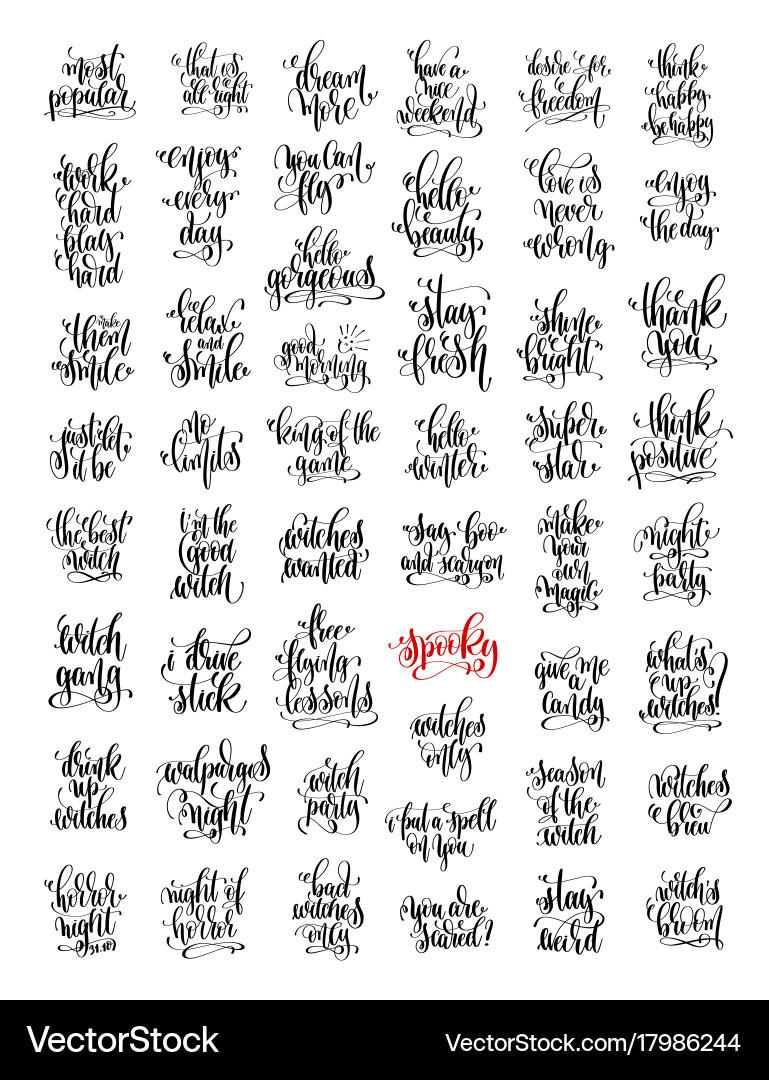 most
popular
that is
all right
dream
more
have a
nice
weekend
desire for
freedom
think
happy
be happy
work
hard
play
hard
enjoy
every
day
you can
fly
hello
beauty
love is
never
wrong
enjoy
the day
hello
gorgeous
make
them
smile
relax
and
smile
good
morning
stay
fresh
shine
bright
thank
you
just let
it be
no
limits
king of the
game
hello
winter
super
star
think
positive
the best
witch
i'm the
good
witch
witches
wanted
say boo
and scary on
make
your
own
magic
night
party
witch
gang
i drive
stick
free
flying
lessons
spooky
give me
a
candy
what's
up
witches?
drink
up
witches
walpurgis
night
witch
party
witches
only
season
of the
witch
witches
brew
i put a spell
on you
horror
night
31.10
night of
horror
bad
witches
only
you are
scared?
stay
weird
witch's
broom
VectorStock®
VectorStock.com/17986244